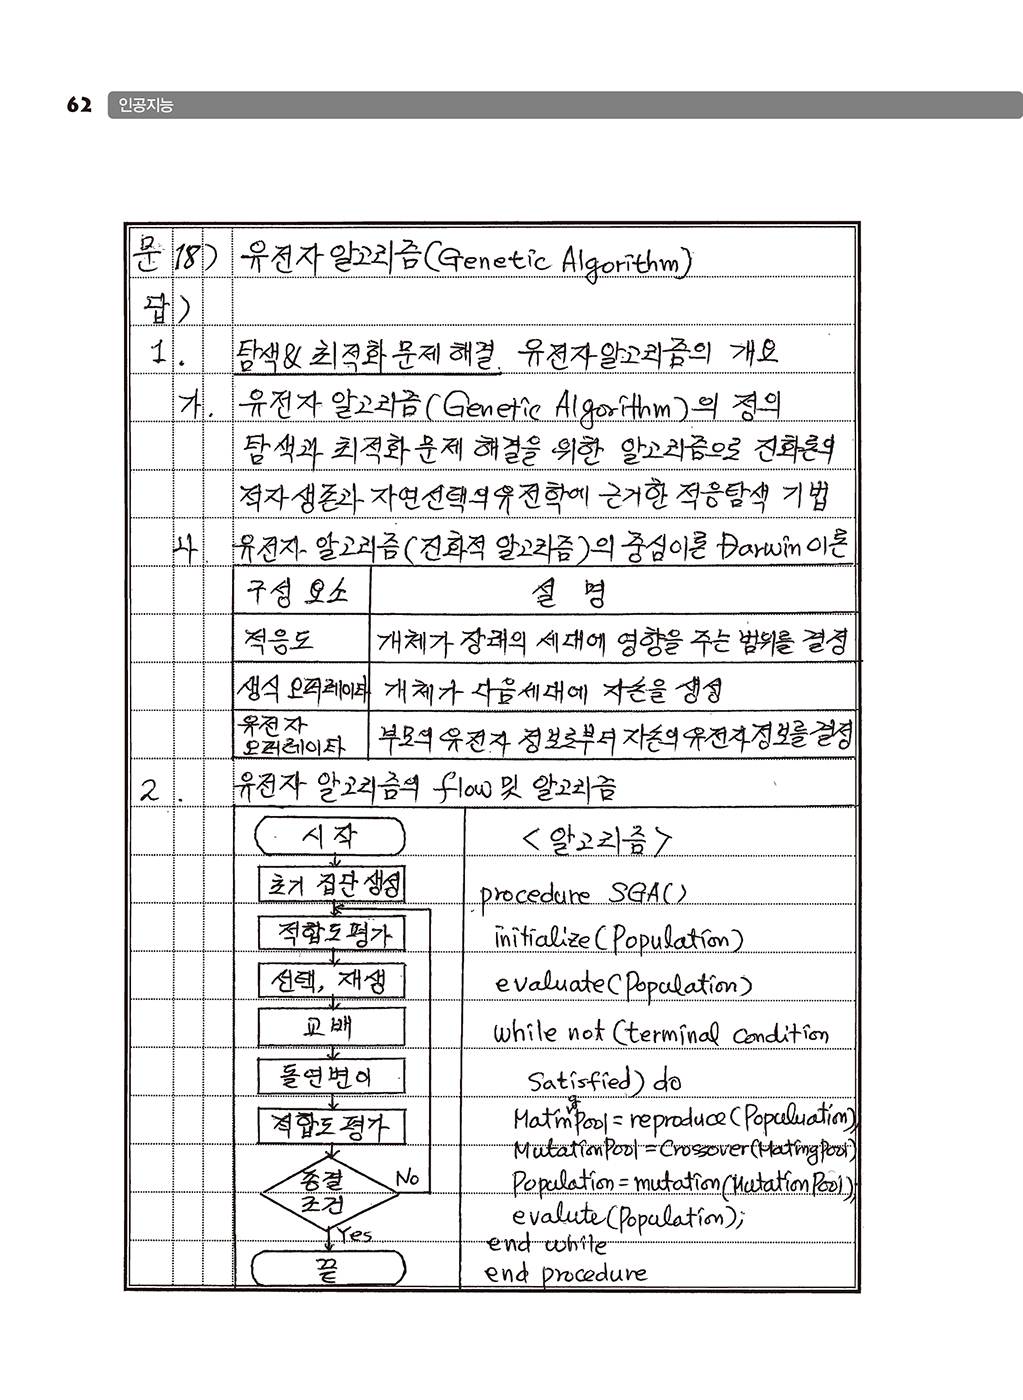 62 인공지능
문 18) 유전자 알고리즘(Genetic Algorithm)
답)
1. 탐색& 최적화 문제 해결. 유전자알고리즘의 개요
가. 유전자 알고리즘(Genetic Algorithm)의 정의
탐색과 최적화 문제 해결을 위한 알고리즘으로 진화론의
적자생존과 자연선택의 유전학에 근거한 적응탐색 기법
나. 유전자 알고리즘(진화적 알고리즘)의 중심이론 Darwin이론
구성 요소 설 명
적응도 개체가 장래의 세대에 영향을 주는 범위를 결정
생식 오퍼레이타 개체가 다음세대에 자손을 생성
유전자
오퍼레이타 부모의 유전자 정보로부터 자손의 유전자정보를 결정
2. 유전자 알고리즘의 flow 및 알고리즘
시작
초기 집단 생성
적합도평가
선택, 재생
교배
돌연변이
적합도평가
종결
조건
No
Yes
끝
<알고리즘>
procedure SGA()
initialize(Population)
evaluate(Population)
while not (terminal condition
Satisfied) do
MatingPool = reproduce(Populuation)
MutationPool = Crossover(MatingPool)
Population = mutation(MutationPool);
evalute(Population);
end while
end procedure